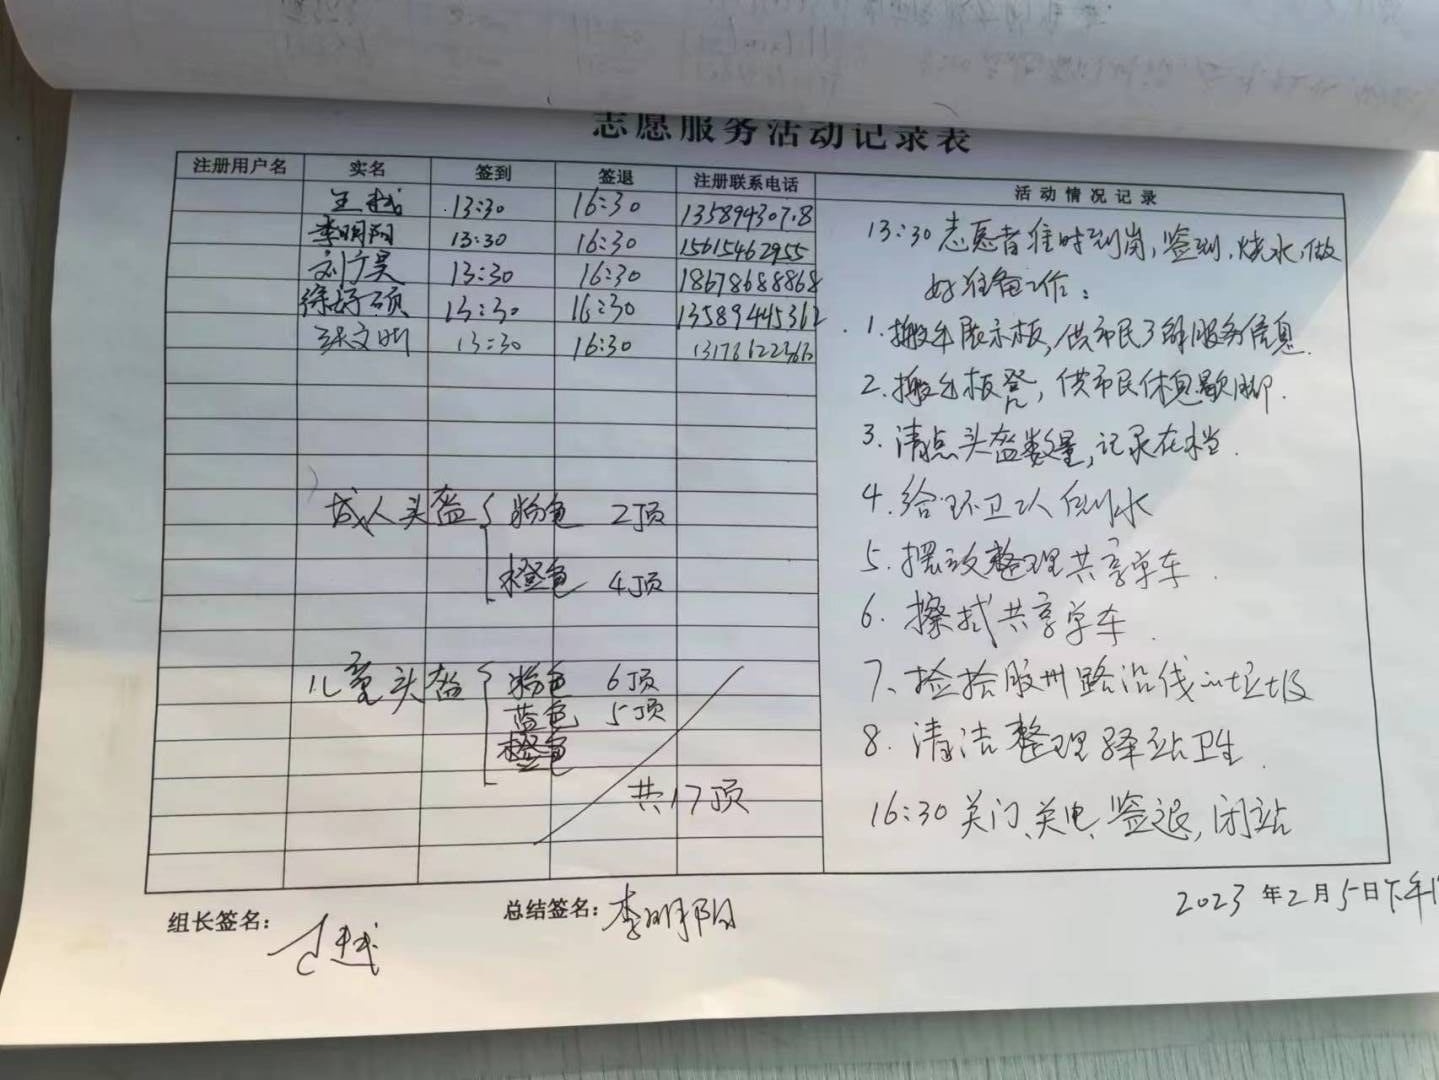 志愿服务活动记录表
注册用户名 实名 签到 签退 注册联系电话 活动情况记录
王越 13:30 16:30
李明阳 13:30 16:30 15615462955
刘广昊 13:30 16:30 18678688868
13:30 16:30 13589445362
张文明 13:30 16:30
成人头盔 粉色 2顶
橙色 4顶
儿童头盔 粉色 6顶
蓝色 5顶
橙色
共17顶
13:30志愿者准时到岗,签到,烧水,做
好准备工作:
1.搬出展示板,供市民了解服务信息.
2.搬出板凳,供市民休息歇脚.
3.清点头盔数量,记录在档.
4.给环卫工人倒水
5.摆放整理共享单车.
6.擦拭共享单车.
7、捡拾胶州路沿线的垃圾
8.清洁整理驿站卫生.
16:30关门、关电、签退,闭站
组长签名: 王越 总结签名: 李明阳
2023年2月5日下午